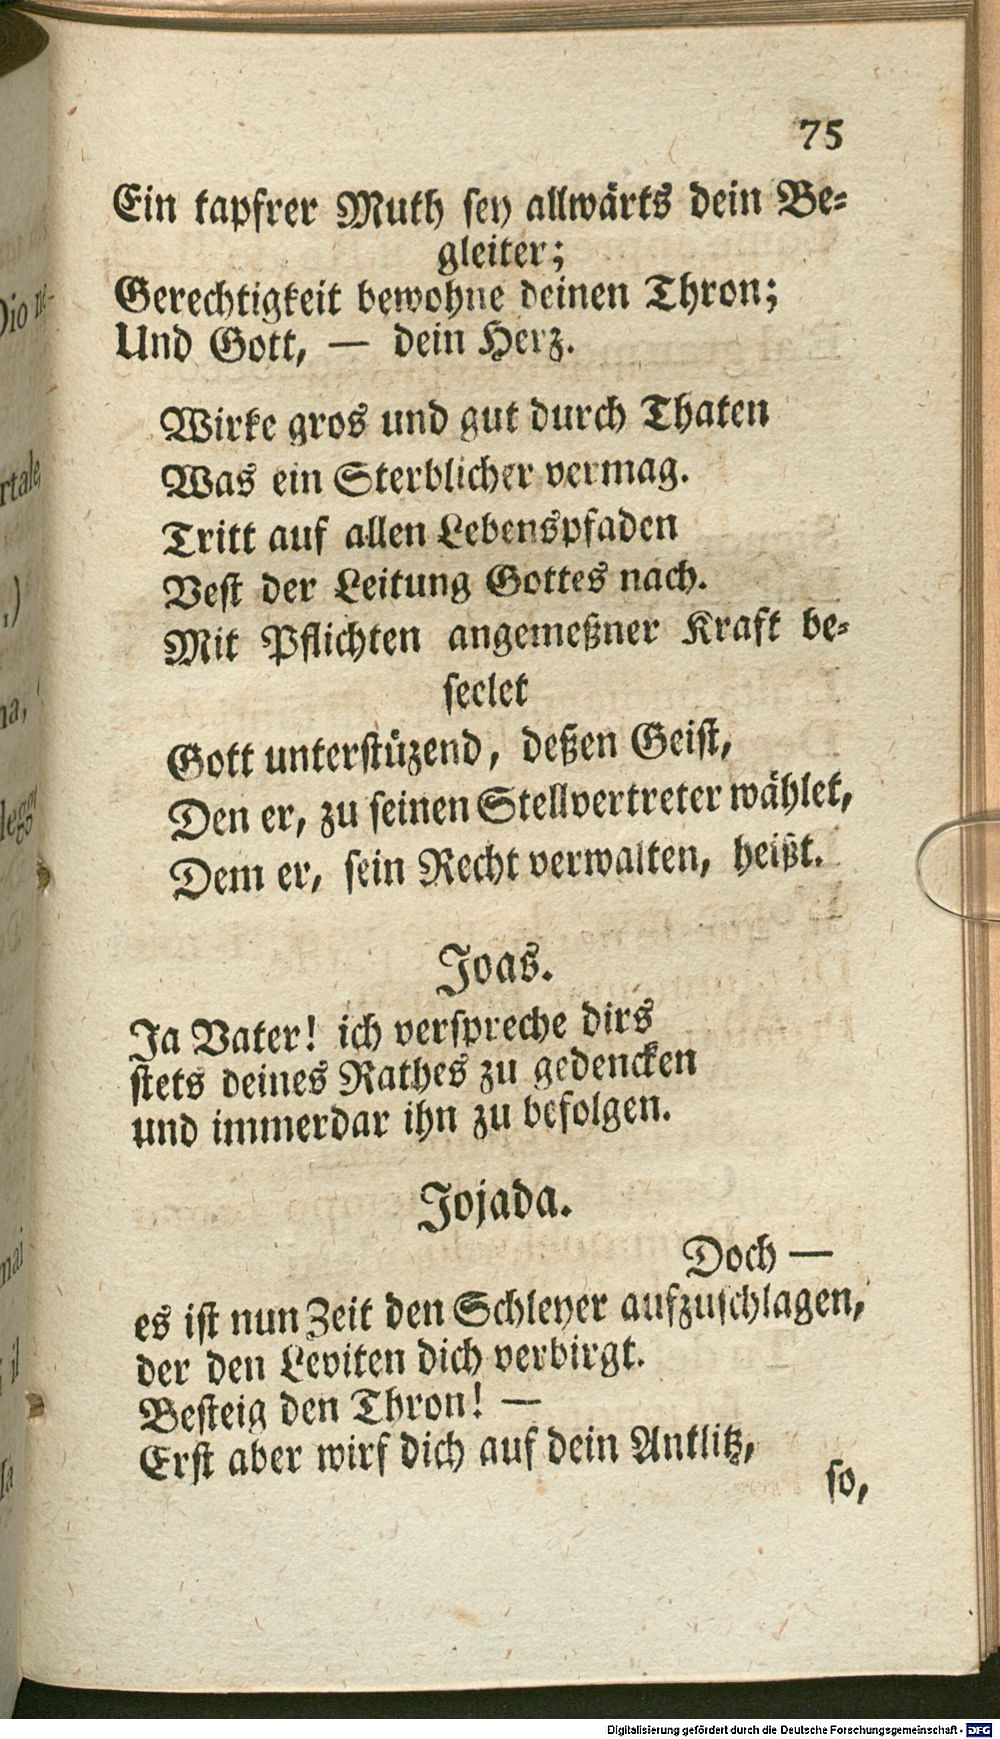 75
Ein tapfrer Muth sey allwärts dein Be-
gleiter;
Gerechtigkeit bewohne deinen Thron;
Und Gott, — dein Herz.
Wirke gros und gut durch Thaten
Was ein Sterblicher vermag.
Tritt auf allen Lebenspfaden
Vest der Leitung Gottes nach.
Mit Pflichten angemeßner Kraft be-
seelet
Gott unterstüzend, deßen Geist,
Den er, zu seinen Stellvertreter wählet,
Dem er, sein Recht verwalten, heißt.
Joas.
Ja Vater! ich verspreche dirs
stets deines Rathes zu gedencken
und immerdar ihn zu befolgen.
Jojada.
Doch —
es ist nun Zeit den Schleyer aufzuschlagen,
der den Leviten dich verbirgt.
Besteig den Thron! —
Erst aber wirf dich auf dein Antlitz,
so,
Digitalisierung gefördert durch die Deutsche Forschungsgemeinschaft - DFG